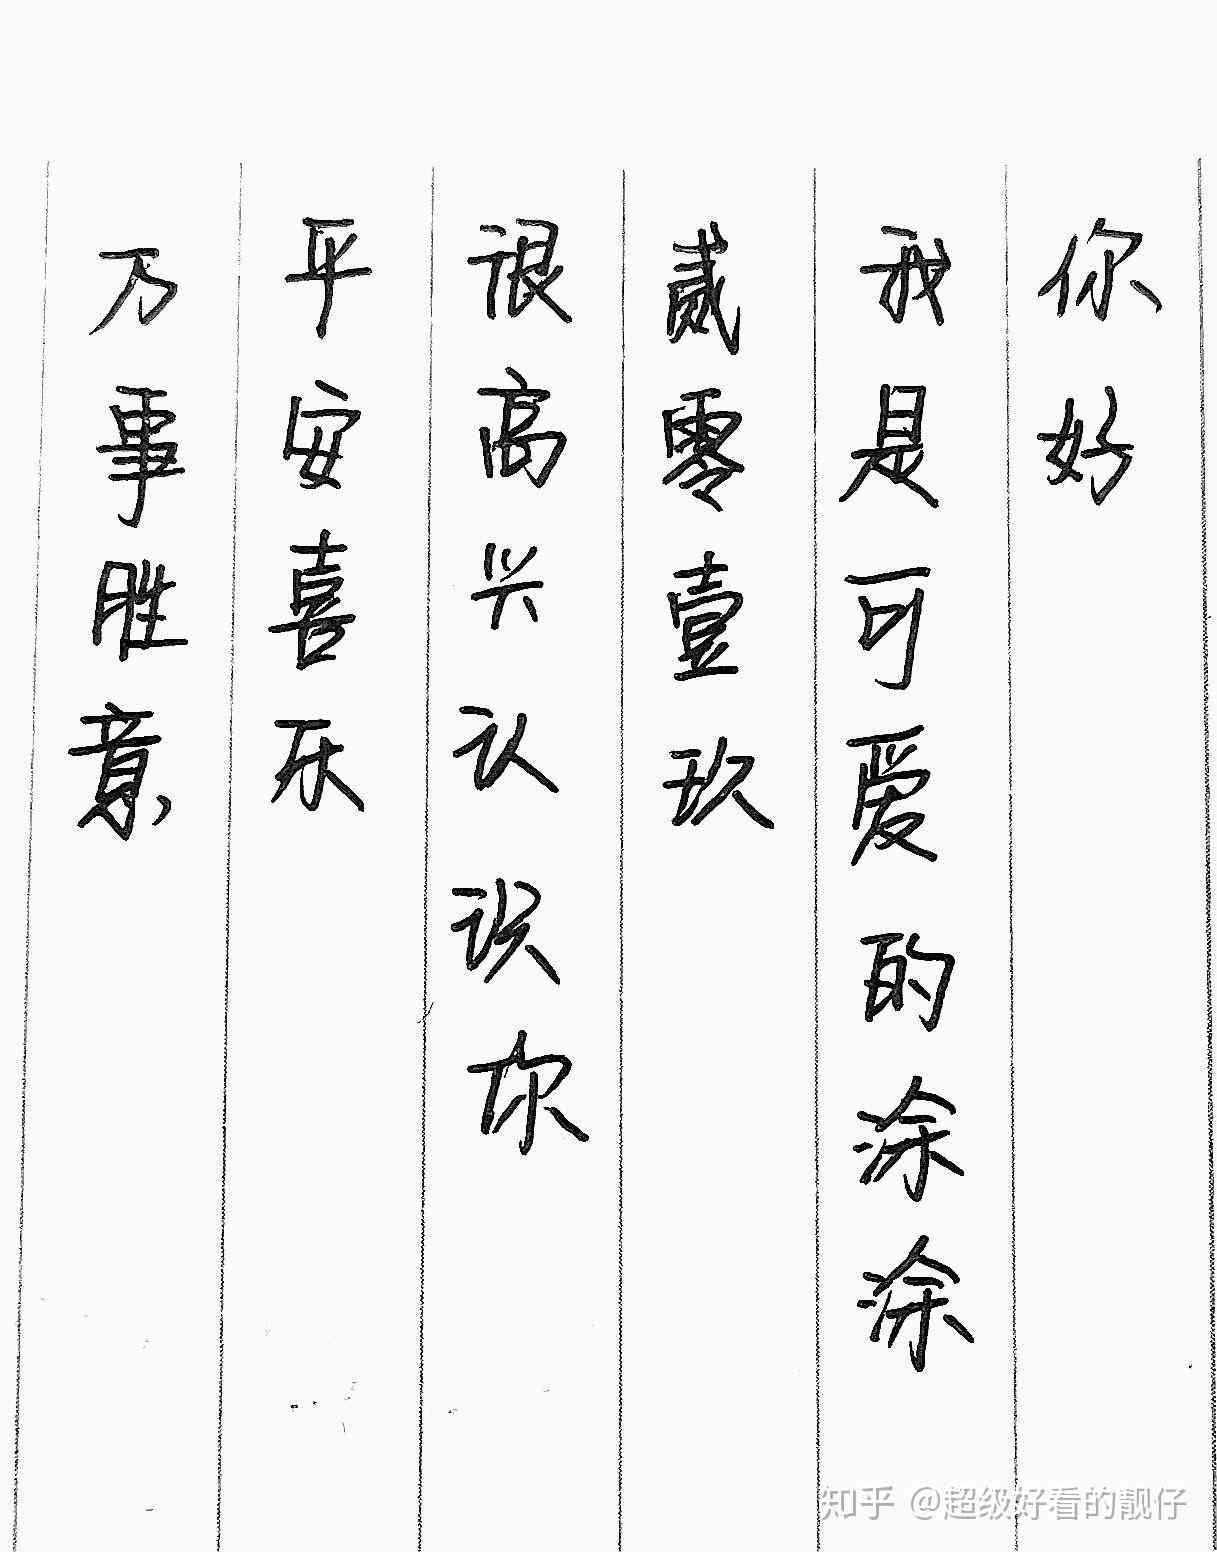 你好
我是可爱的涂涂
贰零壹玖
很高兴认识你
平安喜乐
万事胜意
知乎 @超级好看的靓仔